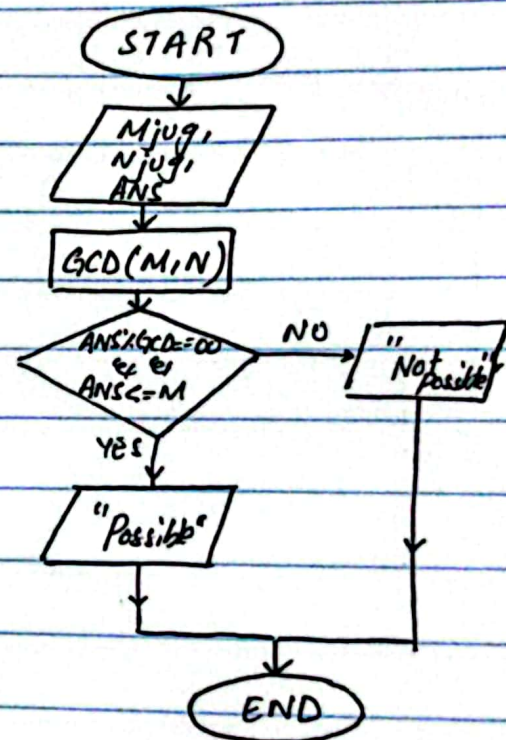 START
Mjug,
Njug,
ANS
GCD(M,N)
ANS%GCD==00
&&
ANS<=M
NO
"Not
possible"
YES
"Possible"
END